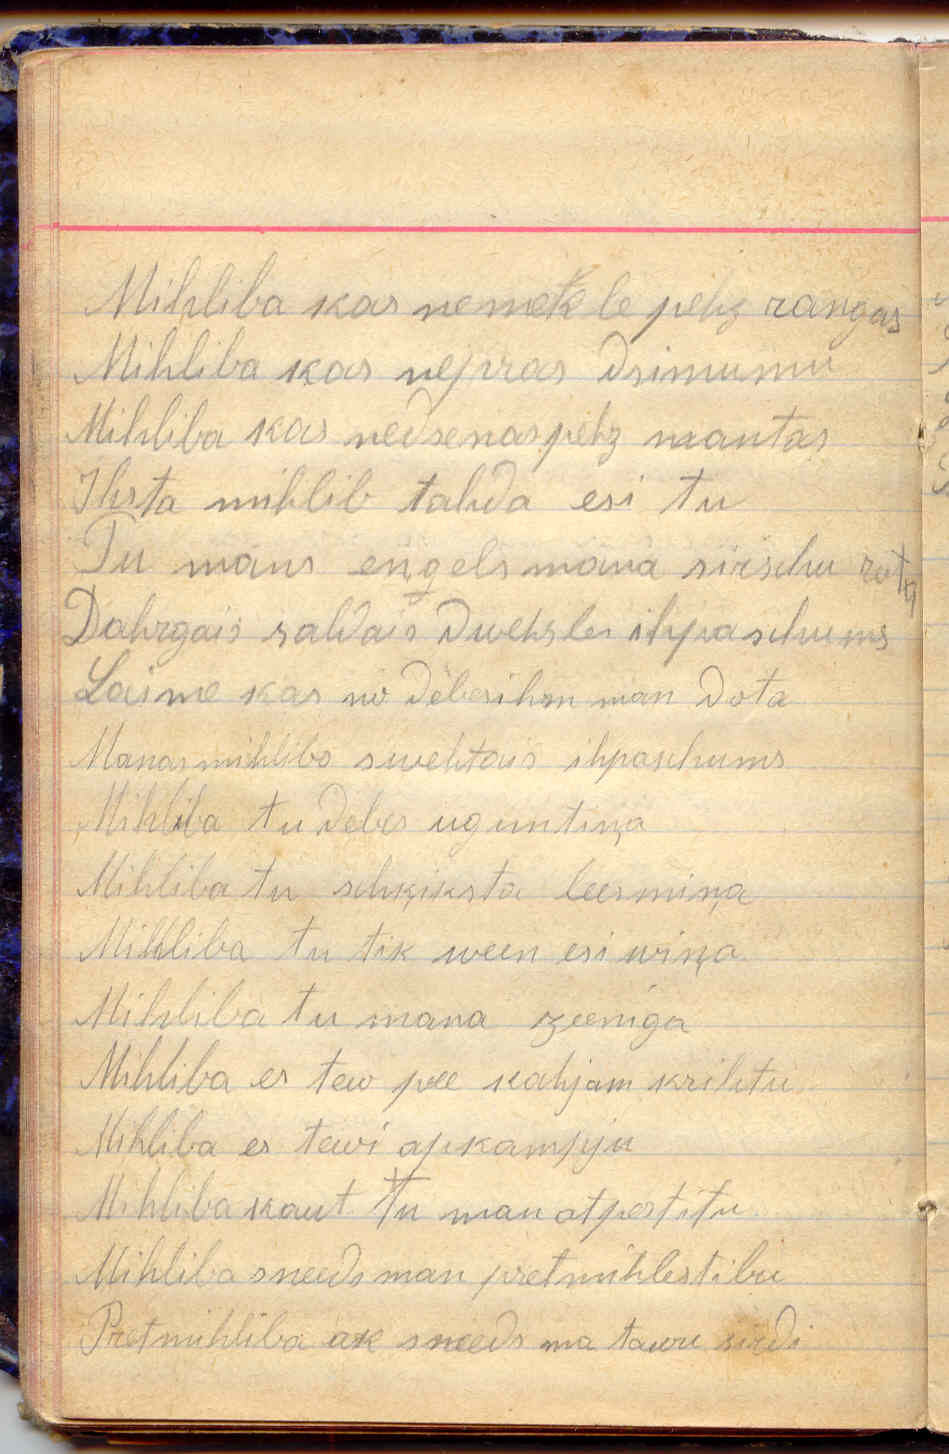 Mihliba kas nemekle pehz rangas
Mihliba kas nepras dsimumu
Mihliba kas nedsenas pehz mantas
Ihsta mihlib tahda esi tu
Tu mans engels mana sirschu rota
Dahrgais saldais dwehsles ihpaschums
Laime kas no debesihm man dota
Manas mihlibo swehtais ihpaschums
Mihliba tu debes uguntiņa
Mihliba tu schķiksta leesmiņa
Mihliba tu tik ween esi wiņa
Mihliba tu mana zeeniga
Mihliba es tew pee kahjam krihtu
Mihliba es tewi apkampju
Mihliba kaut Tu man atpestitu
Mihliba sneeds man pretmihlestibu
Pretmihliba ak sneeds ma tawu sirdi